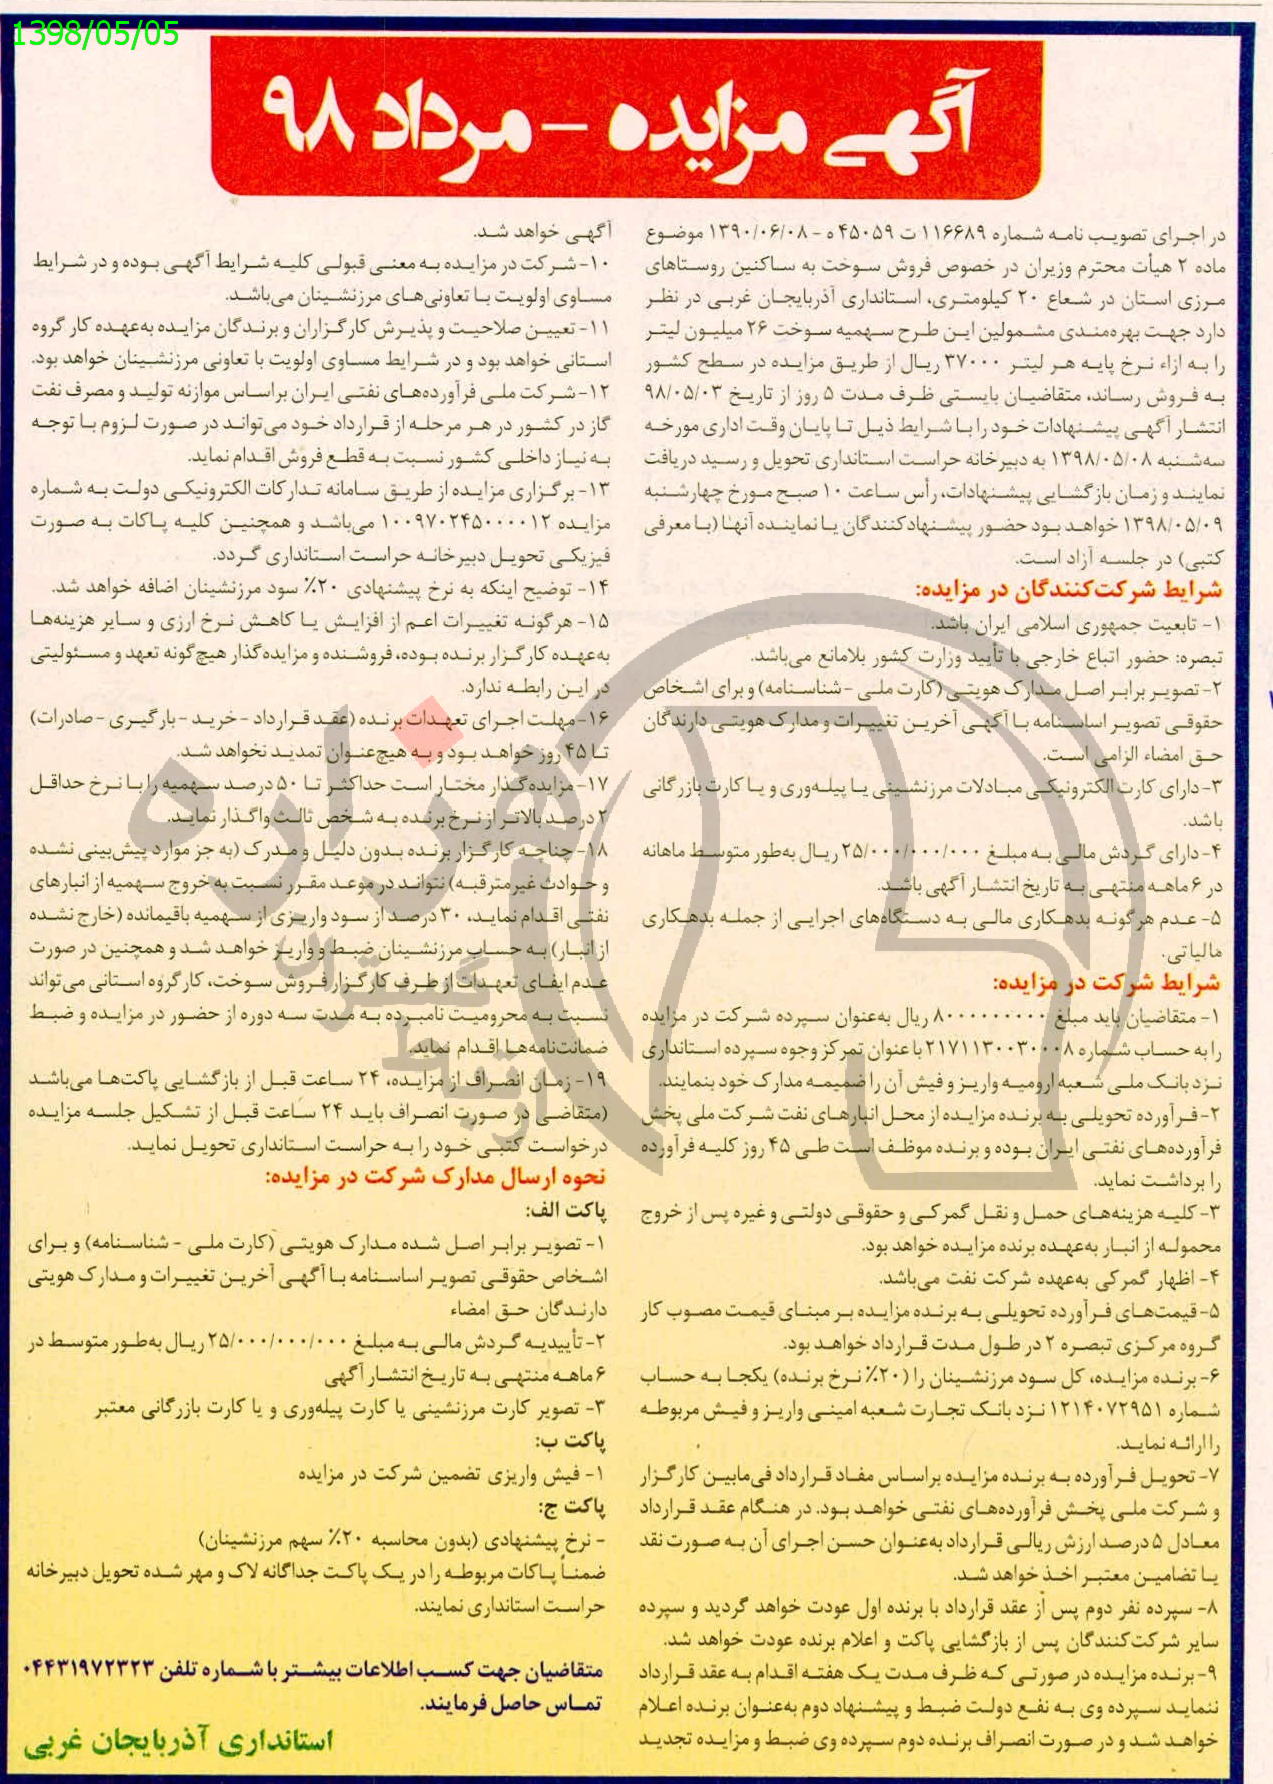 1398/05/05
آگهی مزایده - مرداد ۹۸
در اجرای تصویب نامه شماره ۱۱۶۶۸۹ ت ۴۵۰۵۹ ه - ۱۳۹۰/۰۶/۰۸ موضوع
ماده ۲ هیأت محترم وزیران در خصوص فروش سوخت به ساکنین روستاهای
مرزی استان در شعاع ۲۰ کیلومتری، استانداری آذربایجان غربی در نظر
دارد جهت بهره‌مندی مشمولین این طرح سهمیه سوخت ۲۶ میلیون لیتر
را به ازاء نرخ پایه هر لیتر ۳۷۰۰۰ ریال از طریق مزایده در سطح کشور
به فروش رساند، متقاضیان بایستی ظرف مدت ۵ روز از تاریخ ۹۸/۰۵/۰۳
انتشار آگهی پیشنهادات خود را با شرایط ذیل تا پایان وقت اداری مورخه
سه‌شنبه ۱۳۹۸/۰۵/۰۸ به دبیرخانه حراست استانداری تحویل و رسید دریافت
نمایند و زمان بازگشایی پیشنهادات، رأس ساعت ۱۰ صبح مورخ چهارشنبه
۱۳۹۸/۰۵/۰۹ خواهد بود حضور پیشنهادکنندگان یا نماینده آنها (با معرفی
کتبی) در جلسه آزاد است.
شرایط شرکت‌کنندگان در مزایده:
۱- تابعیت جمهوری اسلامی ایران باشد.
تبصره: حضور اتباع خارجی با تأیید وزارت کشور بلامانع می‌باشد.
۲- تصویر برابر اصل مدارک هویتی (کارت ملی - شناسنامه) و برای اشخاص
حقوقی تصویر اساسنامه با آگهی آخرین تغییرات و مدارک هویتی دارندگان
حق امضاء الزامی است.
۳- دارای کارت الکترونیکی مبادلات مرزنشینی یا پیله‌وری و یا کارت بازرگانی
باشد.
۴- دارای گردش مالی به مبلغ ۲۵/۰۰۰/۰۰۰/۰۰۰ ریال به‌طور متوسط ماهانه
در ۶ ماهه منتهی به تاریخ انتشار آگهی باشد.
۵- عدم هرگونه بدهکاری مالی به دستگاه‌های اجرایی از جمله بدهکاری
مالیاتی.
شرایط شرکت در مزایده:
۱- متقاضیان باید مبلغ ۸۰۰۰۰۰۰۰۰۰ ریال به‌عنوان سپرده شرکت در مزایده
را به حساب شماره ۲۱۷۱۱۳۰۰۳۰۰۰۸ با عنوان تمرکز وجوه سپرده استانداری
نزد بانک ملی شعبه ارومیه واریز و فیش آن را ضمیمه مدارک خود بنمایند.
۲- فرآورده تحویلی به برنده مزایده از محل انبارهای نفت شرکت ملی پخش
فرآورده‌های نفتی ایران بوده و برنده موظف است طی ۴۵ روز کلیه فرآورده
را برداشت نماید.
۳- کلیه هزینه‌های حمل و نقل گمرکی و حقوقی دولتی و غیره پس از خروج
محموله از انبار به‌عهده برنده مزایده خواهد بود.
۴- اظهار گمرکی به‌عهده شرکت نفت می‌باشد.
۵- قیمت‌های فرآورده تحویلی به برنده مزایده بر مبنای قیمت مصوب کار
گروه مرکزی تبصره ۲ در طول مدت قرارداد خواهد بود.
۶- برنده مزایده، کل سود مرزنشینان را (۲۰٪ نرخ برنده) یکجا به حساب
شماره ۱۲۱۴۰۷۲۹۵۱ نزد بانک تجارت شعبه امینی واریز و فیش مربوطه
را ارائه نماید.
۷- تحویل فرآورده به برنده مزایده براساس مفاد قرارداد فی‌مابین کارگزار
و شرکت ملی پخش فرآورده‌های نفتی خواهد بود. در هنگام عقد قرارداد
معادل ۵ درصد ارزش ریالی قرارداد به‌عنوان حسن اجرای آن به صورت نقد
یا تضامین معتبر اخذ خواهد شد.
۸- سپرده نفر دوم پس از عقد قرارداد با برنده اول عودت خواهد گردید و سپرده
سایر شرکت‌کنندگان پس از بازگشایی پاکت و اعلام برنده عودت خواهد شد.
۹- برنده مزایده در صورتی که ظرف مدت یک هفته اقدام به عقد قرارداد
ننماید سپرده وی به نفع دولت ضبط و پیشنهاد دوم به‌عنوان برنده اعلام
خواهد شد و در صورت انصراف برنده دوم سپرده وی ضبط و مزایده تجدید
آگهی خواهد شد.
۱۰- شرکت در مزایده به معنی قبولی کلیه شرایط آگهی بوده و در شرایط
مساوی اولویت با تعاونی‌های مرزنشینان می‌باشد.
۱۱- تعیین صلاحیت و پذیرش کارگزاران و برندگان مزایده به‌عهده کار گروه
استانی خواهد بود و در شرایط مساوی اولویت با تعاونی مرزنشینان خواهد بود.
۱۲- شرکت ملی فرآورده‌های نفتی ایران براساس موازنه تولید و مصرف نفت
گاز در کشور در هر مرحله از قرارداد خود می‌تواند در صورت لزوم با توجه
به نیاز داخلی کشور نسبت به قطع فروش اقدام نماید.
۱۳- برگزاری مزایده از طریق سامانه تدارکات الکترونیکی دولت به شماره
مزایده ۱۰۰۹۷۰۲۴۵۰۰۰۰۱۲ می‌باشد و همچنین کلیه پاکات به صورت
فیزیکی تحویل دبیرخانه حراست استانداری گردد.
۱۴- توضیح اینکه به نرخ پیشنهادی ۲۰٪ سود مرزنشینان اضافه خواهد شد.
۱۵- هرگونه تغییرات اعم از افزایش یا کاهش نرخ ارزی و سایر هزینه‌ها
به‌عهده کارگزار برنده بوده، فروشنده و مزایده‌گذار هیچ‌گونه تعهد و مسئولیتی
در این رابطه ندارد.
۱۶- مهلت اجرای تعهدات برنده (عقد قرارداد - خرید - بارگیری - صادرات)
تا ۴۵ روز خواهد بود و به هیچ‌عنوان تمدید نخواهد شد.
۱۷- مزایده‌گذار مختار است حداکثر تا ۵۰ درصد سهمیه را با نرخ حداقل
۲ درصد بالاتر از نرخ برنده به شخص ثالث واگذار نماید.
۱۸- چنانچه کارگزار برنده بدون دلیل و مدرک (به جز موارد پیش‌بینی نشده
و حوادث غیرمترقبه) نتواند در موعد مقرر نسبت به خروج سهمیه از انبارهای
نفتی اقدام نماید، ۳۰ درصد از سود واریزی از سهمیه باقیمانده (خارج نشده
از انبار) به حساب مرزنشینان ضبط و واریز خواهد شد و همچنین در صورت
عدم ایفای تعهدات از طرف کارگزار فروش سوخت، کارگروه استانی می‌تواند
نسبت به محرومیت نامبرده به مدت سه دوره از حضور در مزایده و ضبط
ضمانت‌نامه‌ها اقدام نماید.
۱۹- زمان انصراف از مزایده، ۲۴ ساعت قبل از بازگشایی پاکت‌ها می‌باشد
(متقاضی در صورت انصراف باید ۲۴ ساعت قبل از تشکیل جلسه مزایده
درخواست کتبی خود را به حراست استانداری تحویل نماید.
نحوه ارسال مدارک شرکت در مزایده:
پاکت الف:
۱- تصویر برابر اصل شده مدارک هویتی (کارت ملی - شناسنامه) و برای
اشخاص حقوقی تصویر اساسنامه با آگهی آخرین تغییرات و مدارک هویتی
دارندگان حق امضاء
۲- تأییدیه گردش مالی به مبلغ ۲۵/۰۰۰/۰۰۰/۰۰۰ ریال به‌طور متوسط در
۶ ماهه منتهی به تاریخ انتشار آگهی
۳- تصویر کارت مرزنشینی یا کارت پیله‌وری و یا کارت بازرگانی معتبر
پاکت ب:
۱- فیش واریزی تضمین شرکت در مزایده
پاکت ج:
- نرخ پیشنهادی (بدون محاسبه ۲۰٪ سهم مرزنشینان)
ضمناً پاکات مربوطه را در یک پاکت جداگانه لاک و مهر شده تحویل دبیرخانه
حراست استانداری نمایند.
متقاضیان جهت کسب اطلاعات بیشتر با شماره تلفن ۰۴۴۳۱۹۷۲۳۲۳
تماس حاصل فرمایند.
استانداری آذربایجان غربی